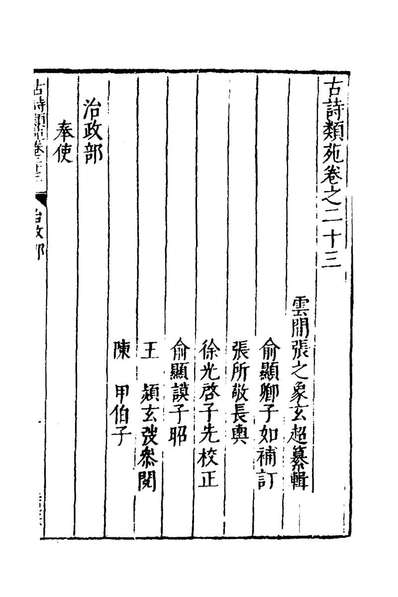 古詩類苑卷之二十三
雲間張之象玄超纂輯
俞顯卿子如補訂
張所敬長輿
徐光啓子先校正
俞顯謨子昭
王 熲玄弢叅閱
陳 甲伯子
治政部
奉使
古詩類苑卷二十三 治政部